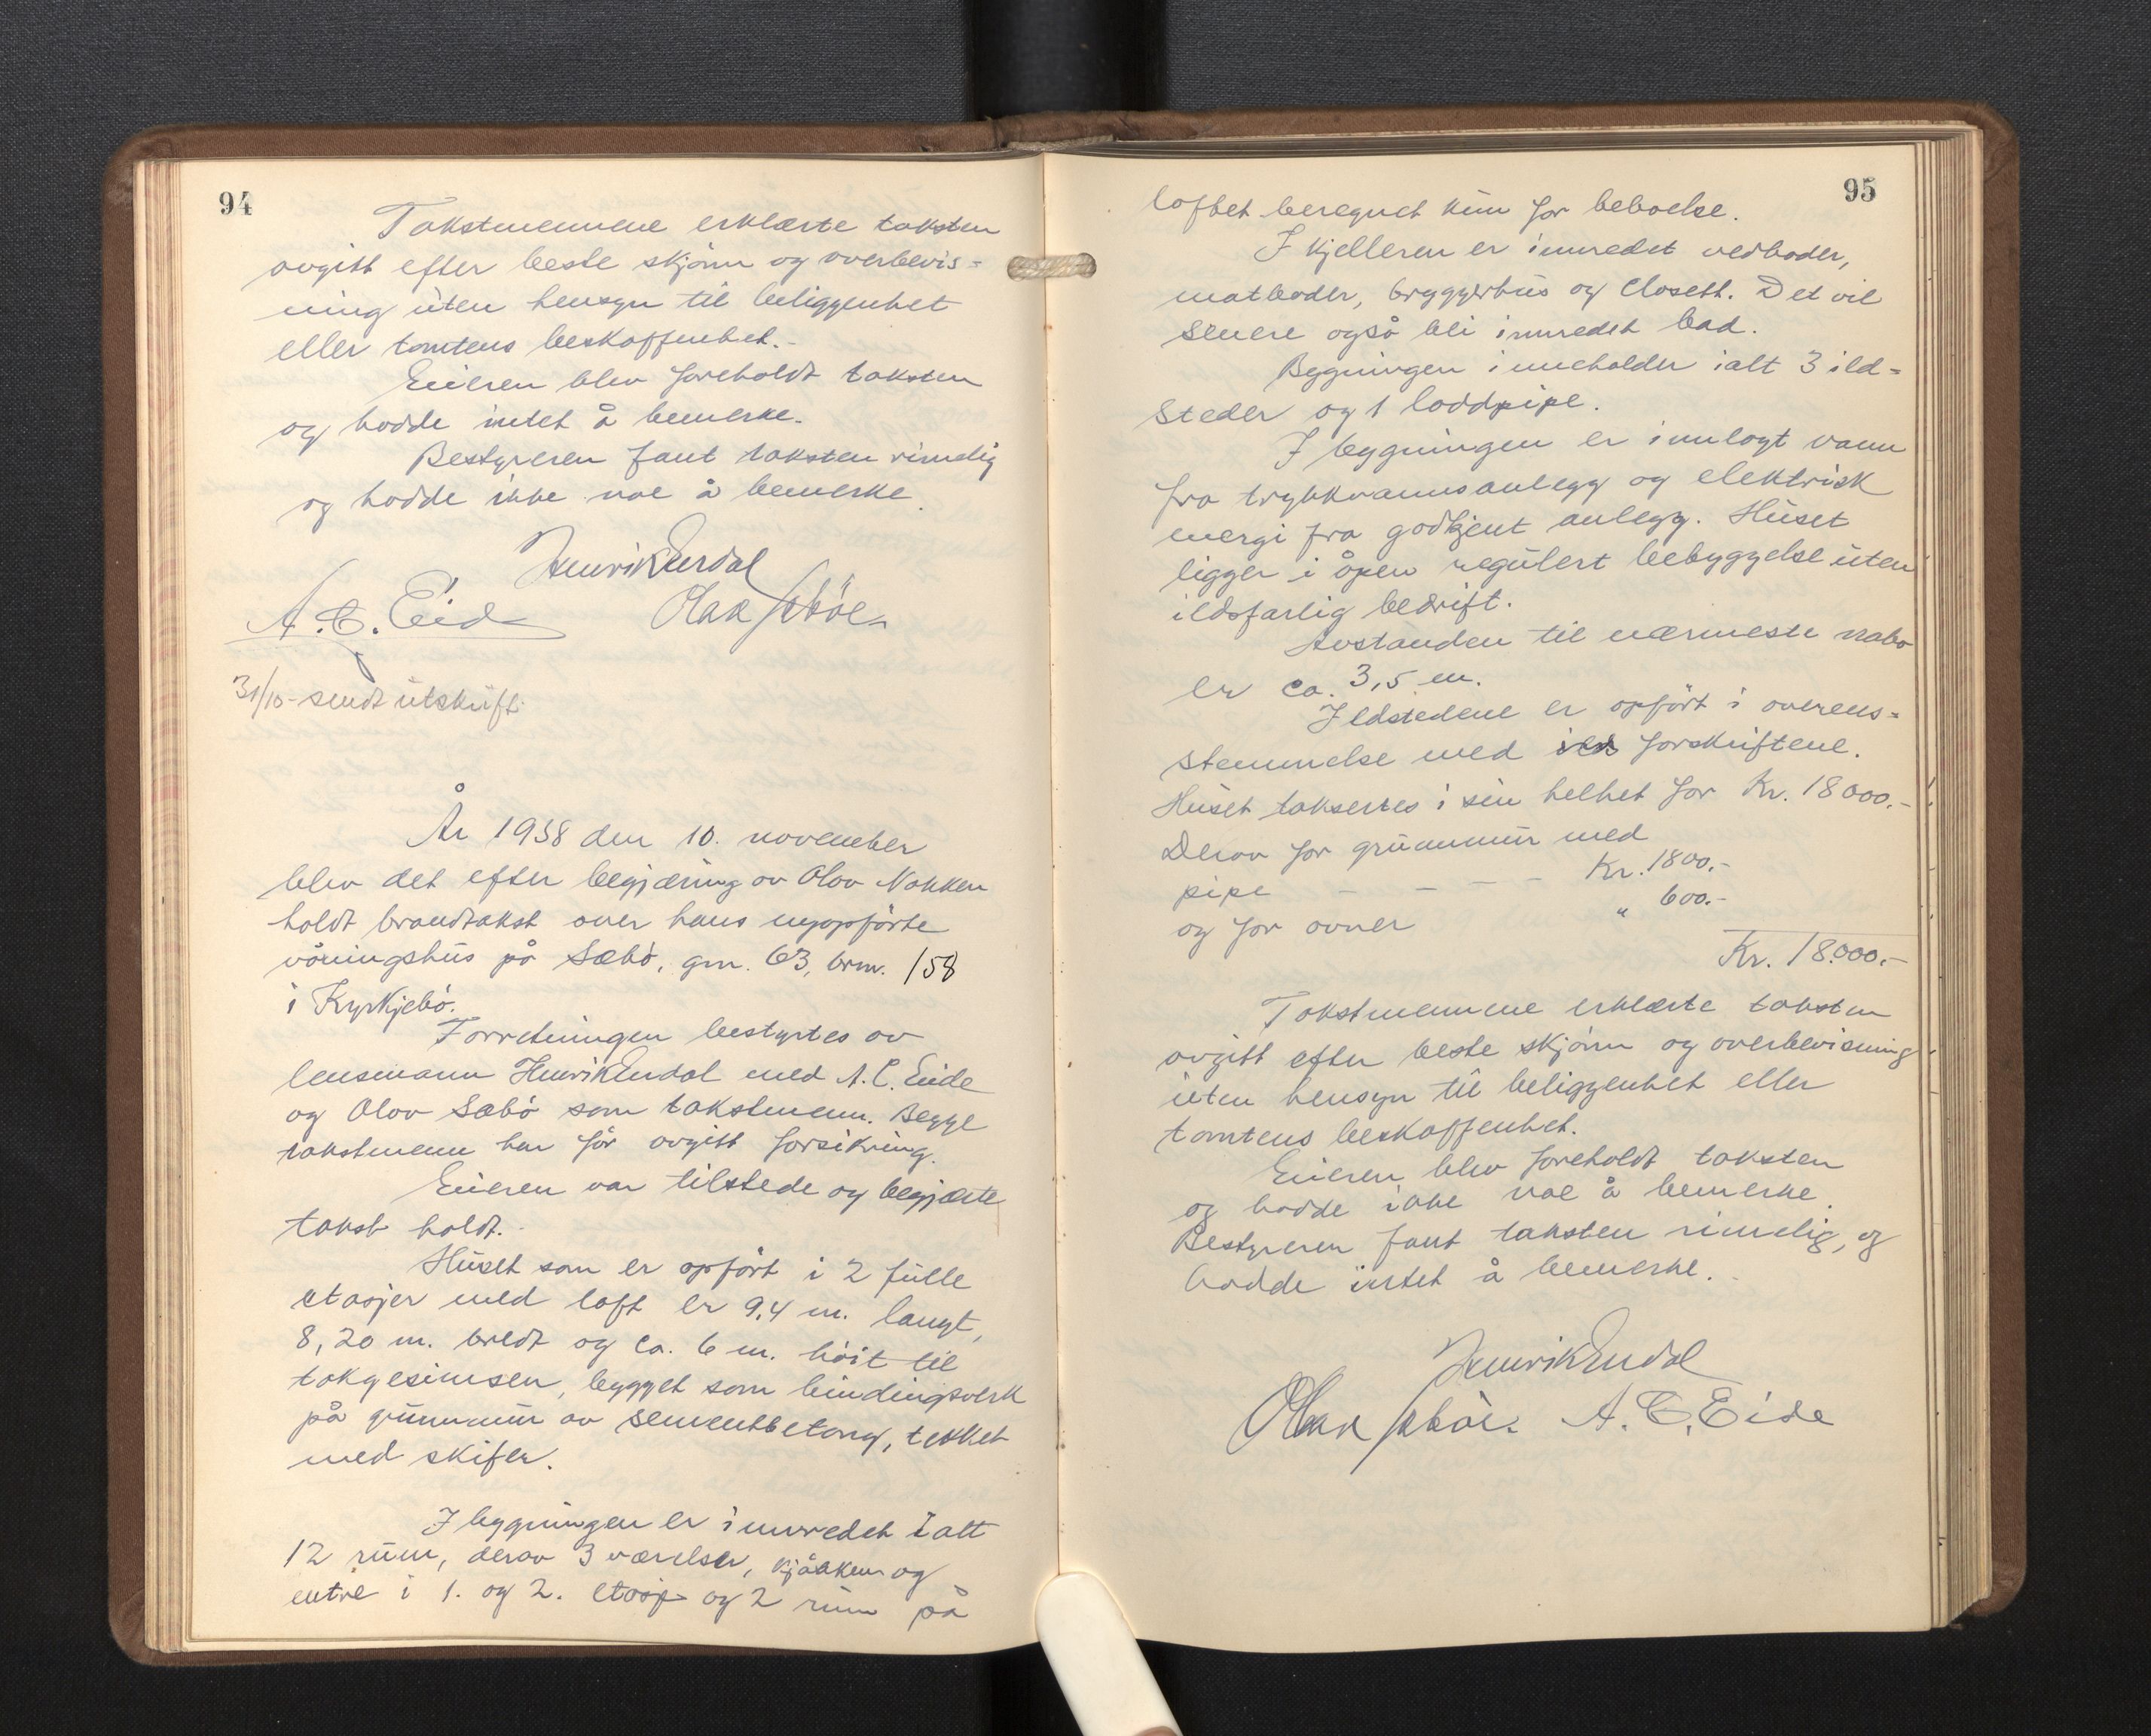 94
Takstmennene erklærte taksten
avgitt efter beste skjønn og overbevis-
ning uten hensyn til beliggenhet
eller tomtens beskaffenhet.-
Eieren blev foreholdt taksten
og hadde intet å bemerke.
Bestyreren fant taksten rimelig
og hadde ikke noe å bemerke.
Henrik Erdal
A. C. Eide
31/10- sendt utskrift.
År 1938 den 10. november
blev det efter begjæring av Olav Nakken
holdt brandtakst over hans nyopførte
våningshus på Sæbø, gnr. 63, brnr. 158
i Kyrkjebø.
Forretningen bestyrtes av
lensmann Henrik Erdal med A. C. Eide
og Olav Sæbø som takstmenn. Begge
takstmenn har før avgitt forsikring.
Eieren var tilstede og begjærte
takst holdt.-
Huset som er opført i 2 fulle
etasjer med loft er 9,4 m. langt,
8,20 m. bredt og ca. 6 m. høit til
takgesimsen, bygget som bindingsverk
på grunnmur av sementbetong, tekket
med skifer.
I bygningen er innredet ialt
12 rum, derav 3 værelser, kjøkken og
entre i 1. og 2. etasje og 2 rum på
95
loftet beregnet kun for beboelse.
I kjelleren er innredet vedboder,
matboder, bryggerhus og closett. Det vil
senere også bli innredet bad.
Bygningen inneholder ialt 3 ild-
steder og 1 loddpipe.
I bygningen er innlagt vann
fra trykkvannsanlegg og elektrisk
energi fra godkjent anlegg. Huset
ligger i åpen regulert bebyggelse uten
ildsfarlig bedrift.
Avstanden til nærmeste nabo
er ca. 3,5 m.
Ildstedene er opført i overens-
stemmelse med forskriftene.
Huset taksertes i sin helhet for Kr. 18000.-
Derav for grunnmur med
pipe - - - - Kr. 1800.-
og for ovner " 600.-
Kr. 18.000.-
Takstmennene erklærte taksten
avgitt efter beste skjønn og overbevisning
uten hensyn til beliggenhet eller
tomtens beskaffenhet.
Eieren blev foreholdt taksten
og hadde ikke noe å bemerke.
Bestyreren fant taksten rimelig, og
hadde intet å bemerke.
Henrik Erdal
A. C. Eide